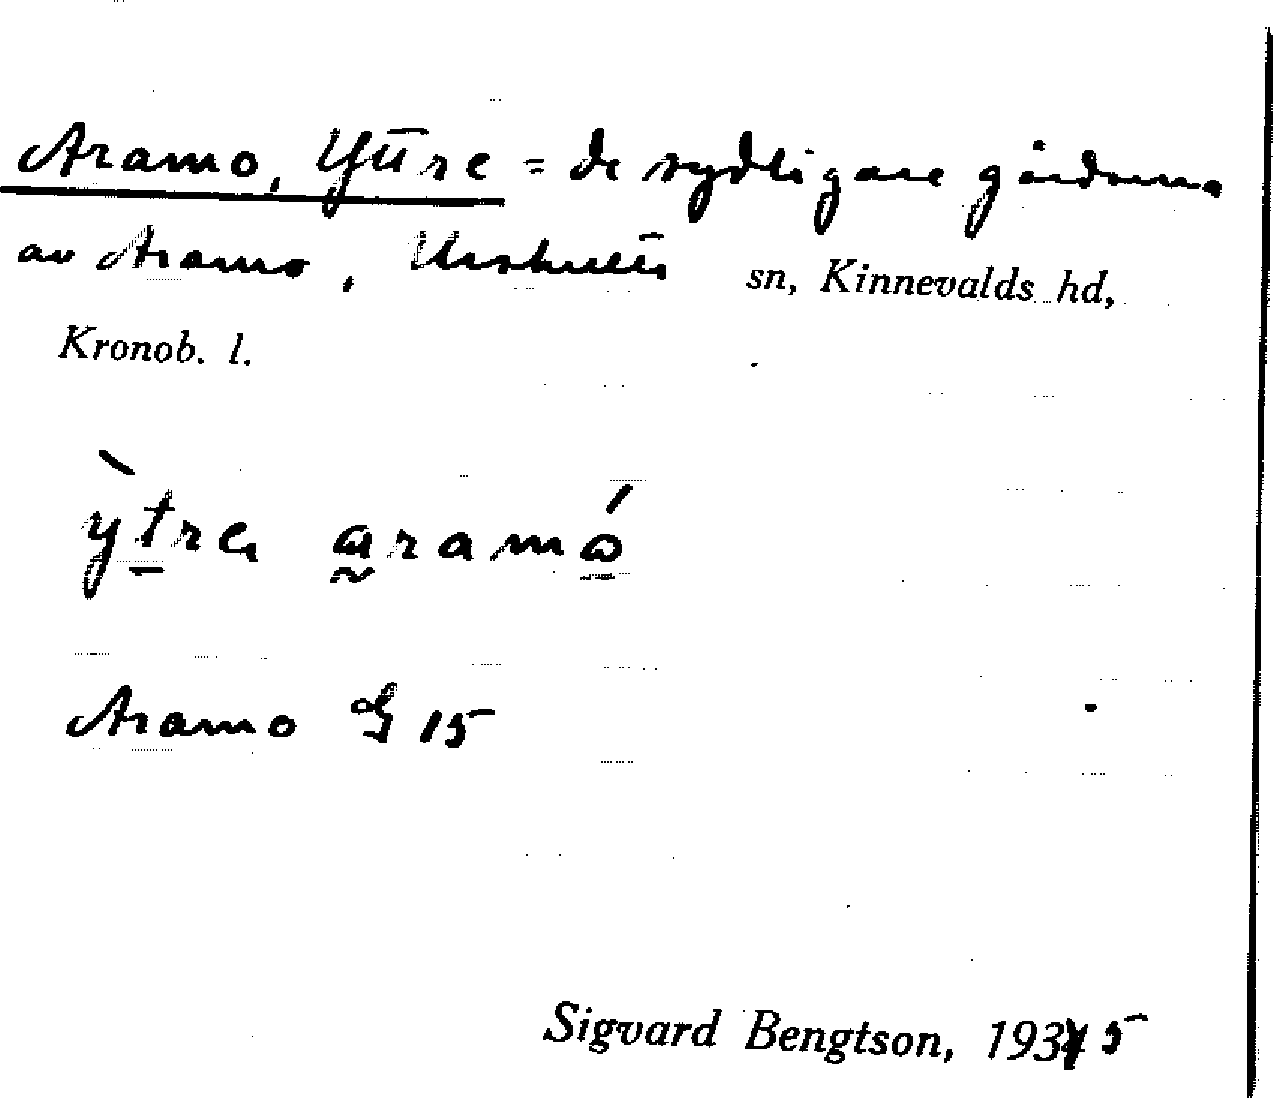 Aramo, Yttre = de sydligare gårdarna
av Aramo, Urshults sn, Kinnevalds hd,
Kronob. l.
ỳtrɐ aramó
Aramo G 15
Sigvard Bengtson, 1935